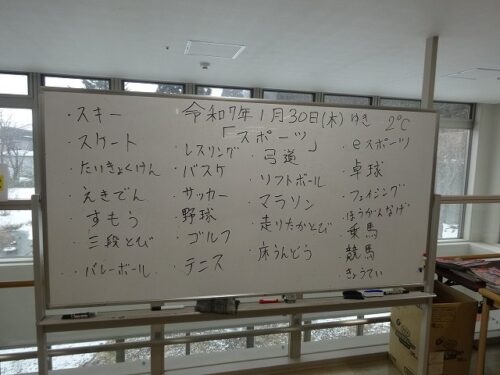 令和7年1月30日(木) ゆき 2℃
「スポーツ」
・スキー
・スケート
・たいきょくけん
・えきでん
・すもう
・三段とび
・バレーボール
・レスリング
・バスケ
・サッカー
・野球
・ゴルフ
・テニス
・弓道
・ソフトボール
・マラソン
・走りたかとび
・床うんどう
・eスポーツ
・卓球
・フェイシング
・ほうがんなげ
・乗馬
・競馬
・きょうてい